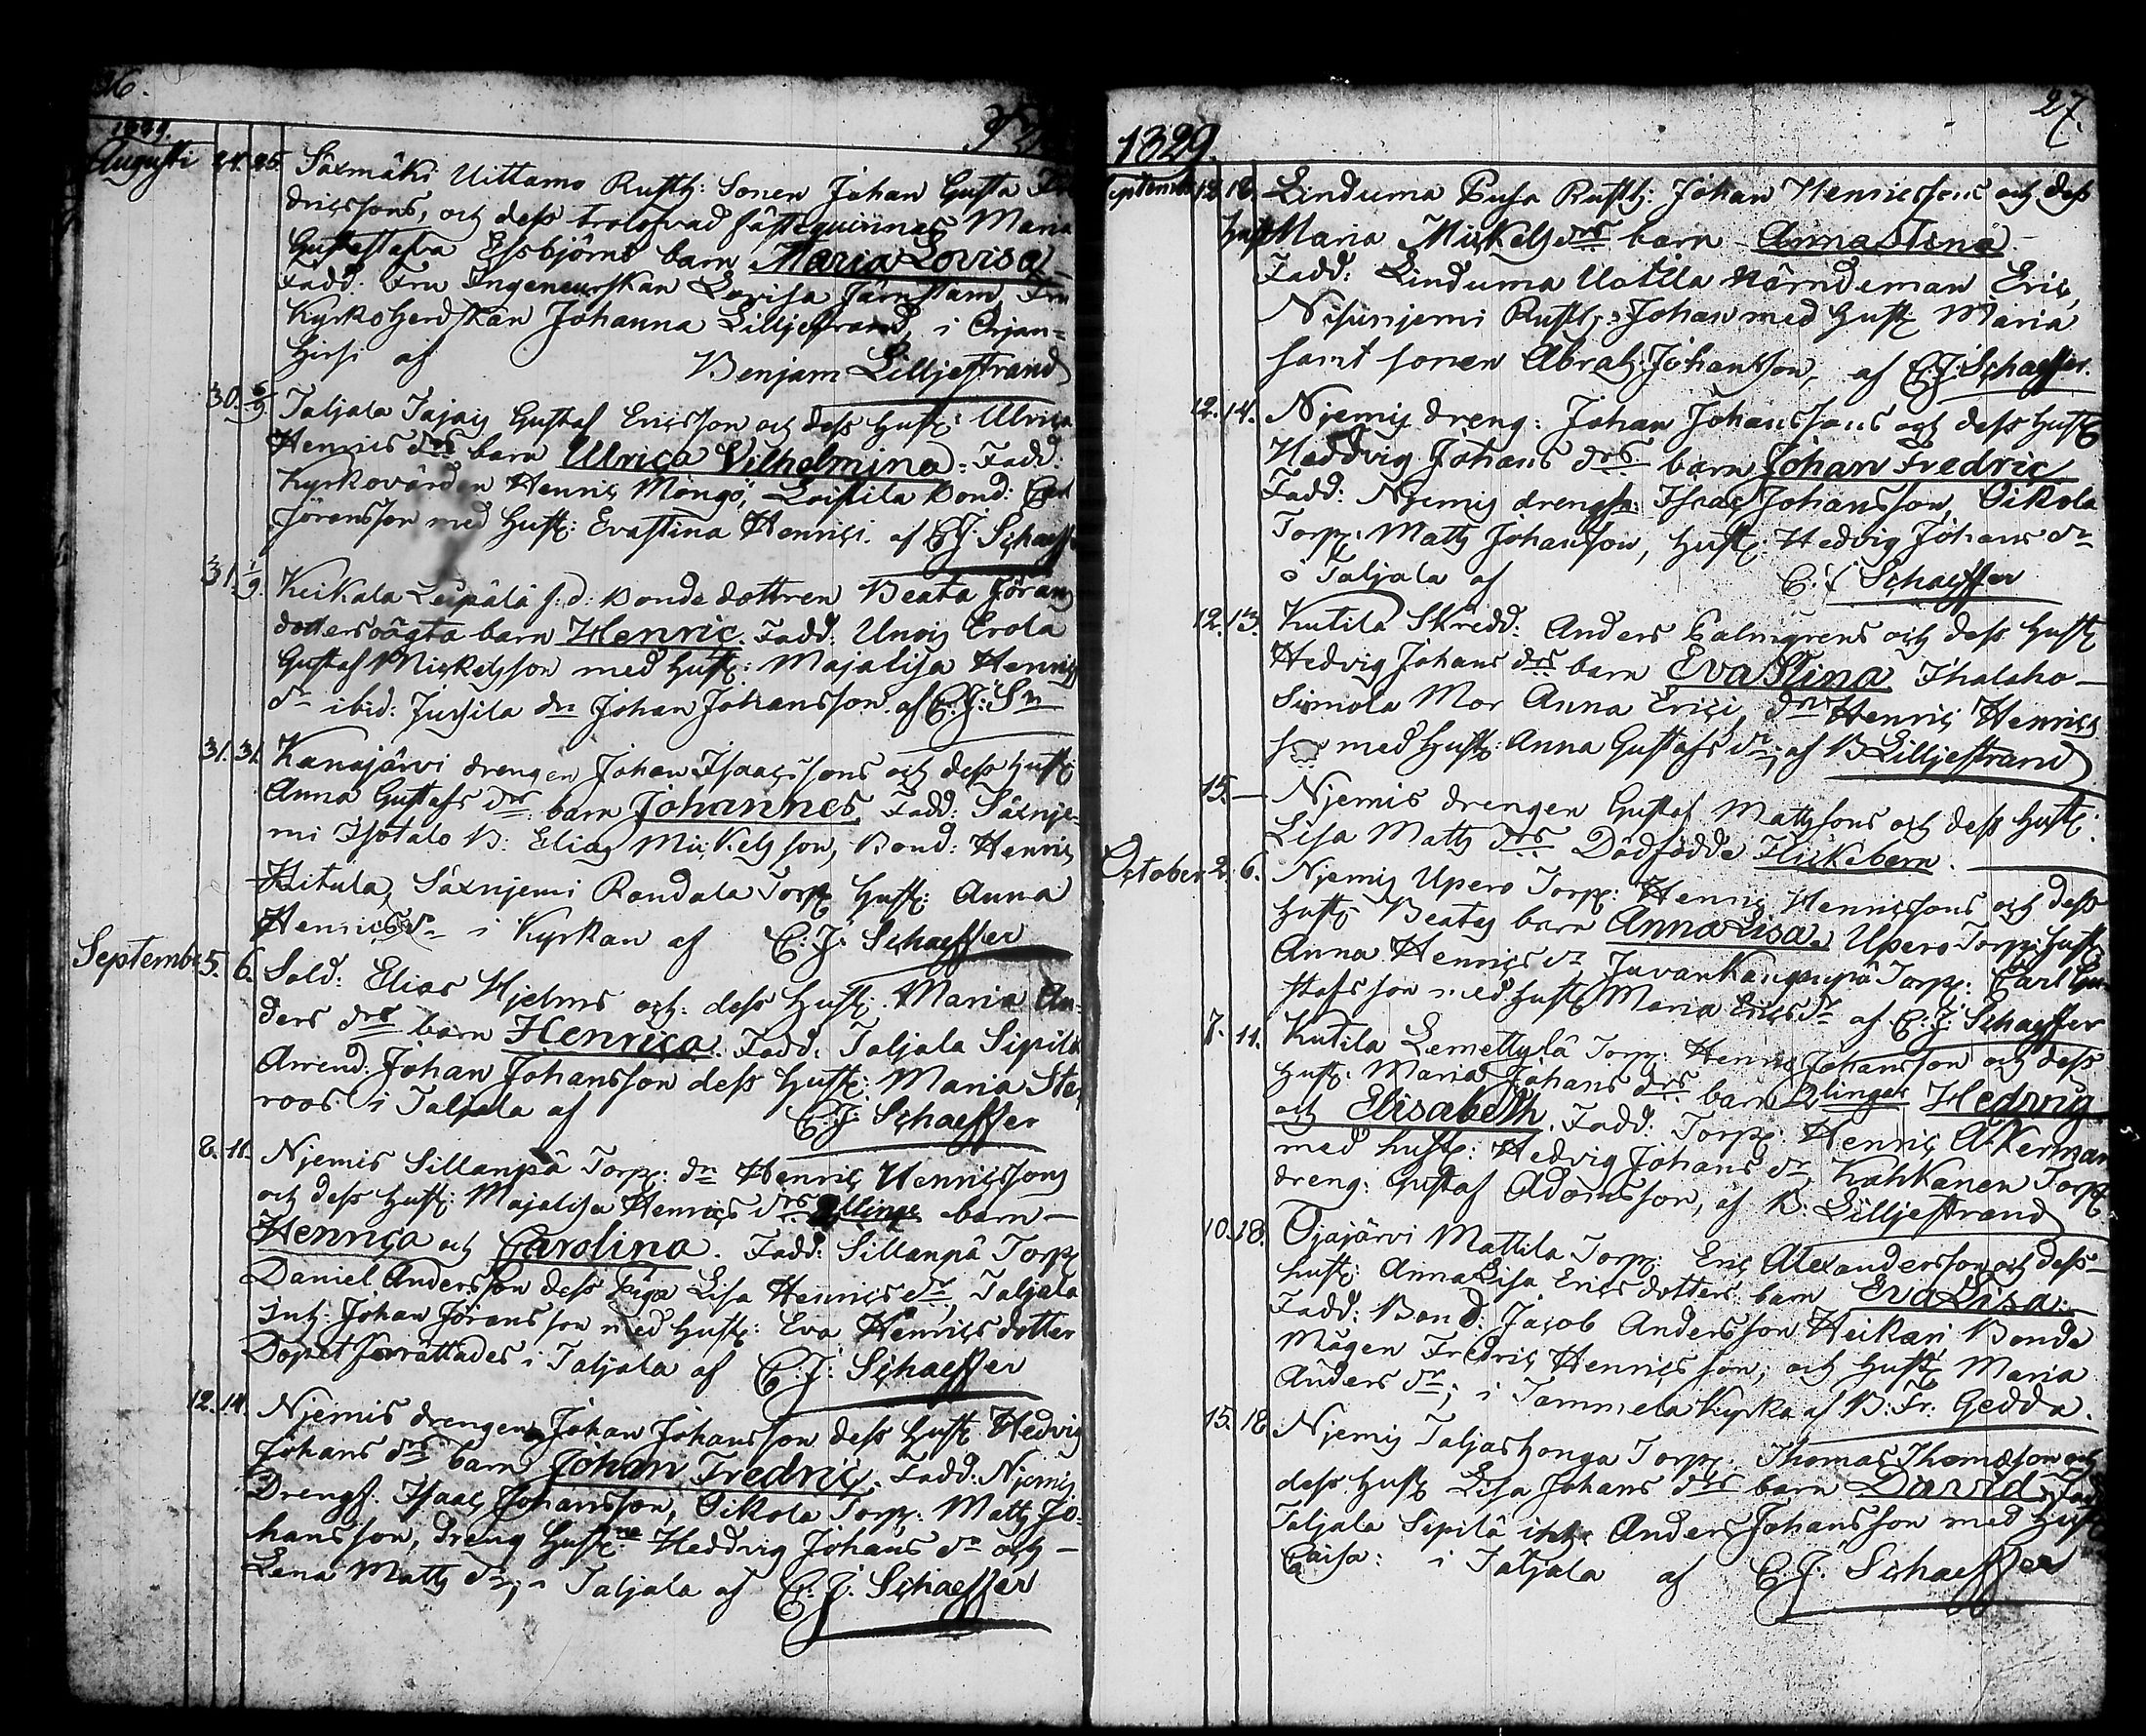 26.
1829.
Augusti 24. 25. Säxmäki Uittamo Rusth: Sonen Johan Gusta
dricssons, och dess trolofvad fästeqvinnas Maria
Gustafsdra Essbjörns barn Maria Lovisa
Fadd. Fru Ingeneurskan Lovisa Järnstam, Fru
Kyrkoherdskan Johanna Lilljestrand, i Orjan-
hirsi af Benjam Lilljestrand
30. 6/9 Taljala Jajas Gustaf Ericsson och dess hust: Ulrica
Henrics drs barn Ulrica Vilhelmina. Fadd:
Kyrkovärden Henric Mongo, Loistila Bond:
Jöransson med hust: Evastina Henrici. af C. J. Schaeff
31. 1/9. Keikala Leipälä f: d: Bonde dottren Beata Jörans
dotters oägta barn Henric. Fadd: Unois Erola
Gustaf Mickelsson med hust: Majalisa Henrics
dr ibid: Jussila dn Johan Johansson. af C. J: Sn
31. 31. Kanajärvi drengen Johan Isaacssons och dess hust:
Anna Gustafs drs barn Johannes. Fadd: Säxnje-
mi Isotalo B: Elias Mickelsson, Bond: Henric
Kitula, Säxnjemi Randala Torp hust: Anna
Henrics dr i Kyrkan af C. J. Schaeffer
Septembr 5. 6. Sold: Elias Hjelms och dess hust: Maria An-
ders drs barn Henrica. Fadd: Taljala Sipilä
Arrend: Johan Johansson dess hust: Maria Ste
roos. i Taljala af C. J. Schaeffer
8. 11. Njemis Sillanpä Torp: dn Henric Henricssons
och dess hust: Majalisa Henrics drs tvillinge barn
Henrica och Carolina. Fadd: Sillanpä Torp
Daniel Andersson dess piga Lisa Henrics dr, Taljala
inh: Johan Jöransson med hust: Eva Henrics dotter
Dopet förrättades i Taljala af C. J: Schaeffer
12. 14. Njemis drengen Johan Johansson dess hust Hedvig
Johans drs barn Johan Fredric. Fadd: Njemis
Drengs. Isaac Johansson, Oikola Torp: Matts Jo-
hansson, dreng hust:na Heddvig Johans dr och
Lena Matts dr, i Taljala af C. J. Schaeffer
27.
1829.
September 12. 18. Linduma Pusa Rusth: Johan Henricssons och dess
hust Maria Mickels drs barn Anna Stina
Fadd: Linduma Uotila Närndeman Eric,
Nisunjemi Rusth: Johan med hust: Maria
samt sonen Abrah: Johansson, af C. J. Schaeffer.
12. 14. Njemis dreng: Johan Johanssons och dess hust
Heddvig Johans drs barn Johan Fredric
Fadd: Njemis drengs: Isaac Johansson, Oikola
Torp: Matts Johansson, hust: Hedvig Johans dr
i Taljala af C. J. Schaeffer
12. 13. Kutila Skredd: Anders Palmgrens och dess hust
Hedvig Johans drs barn Eva Stina Ihalaho
Simola Mor Anna Erici, dn Henric Henrics
med hust: Anna Gustafs dr, af B Lilljestrand
15. — Njemis drengen Gustaf Mattssons och dess hust:
Lisa Matts drs Dödfödde Flickebarn.
October 2. 6. Njemis Upero Torp: Henric Henricssons och dess
hust: Beatas barn Anna Lisa. Upero Torp: hust
Anna Henrics dr Juvankangaspä Torp: Carl Gu
stafsson med hust: Maria Erics dr af C. J: Schaeffer
7. 11. Kutila Lemettylä Torp: Henric Johansson och dess
hust: Maria Johans drs barn Tvlingar Hedvig
och Elisabeth. Fadd: Torp: Henric Åkerman
med hust: Hedvig Johans dr, Kahkanen Torp
dreng: Gustaf Adamsson, af B. Lilljestrand
10. 18. Ojajärvi Mattila Torp: Eric Alexandersson och dess
hust: Anna Lisa Erics dotters barn Eva Lisa.
Fadd: Bond: Jacob Andersson Heikari, Bonde
Mågen Fredric Henricsson, och hust: Maria
Anders dr; i Tammela Kyrka af B: Fr: Gedda.
15. 18 Njemis Taljashonga Torp: Thomas Thomæson och
dess hust: Lisa Johans drs barn David. Fadd
Taljala Sipilä inh: Anders Johansson med hust
Caisa: i Taljala af C. J. Schaeffer